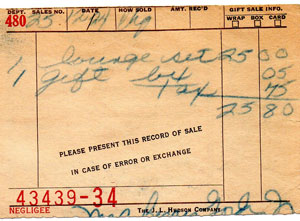 DEPT. SALES NO. DATE HOW SOLD AMT. REC'D GIFT SALE INFO.
WRAP BOX CARD
480 25
1 lounge set 25 00
1 gift bx 05
Tax 75
25 80
PLEASE PRESENT THIS RECORD OF SALE
IN CASE OF ERROR OR EXCHANGE
43439-34
NEGLIGEE THE J. L. HUDSON COMPANY